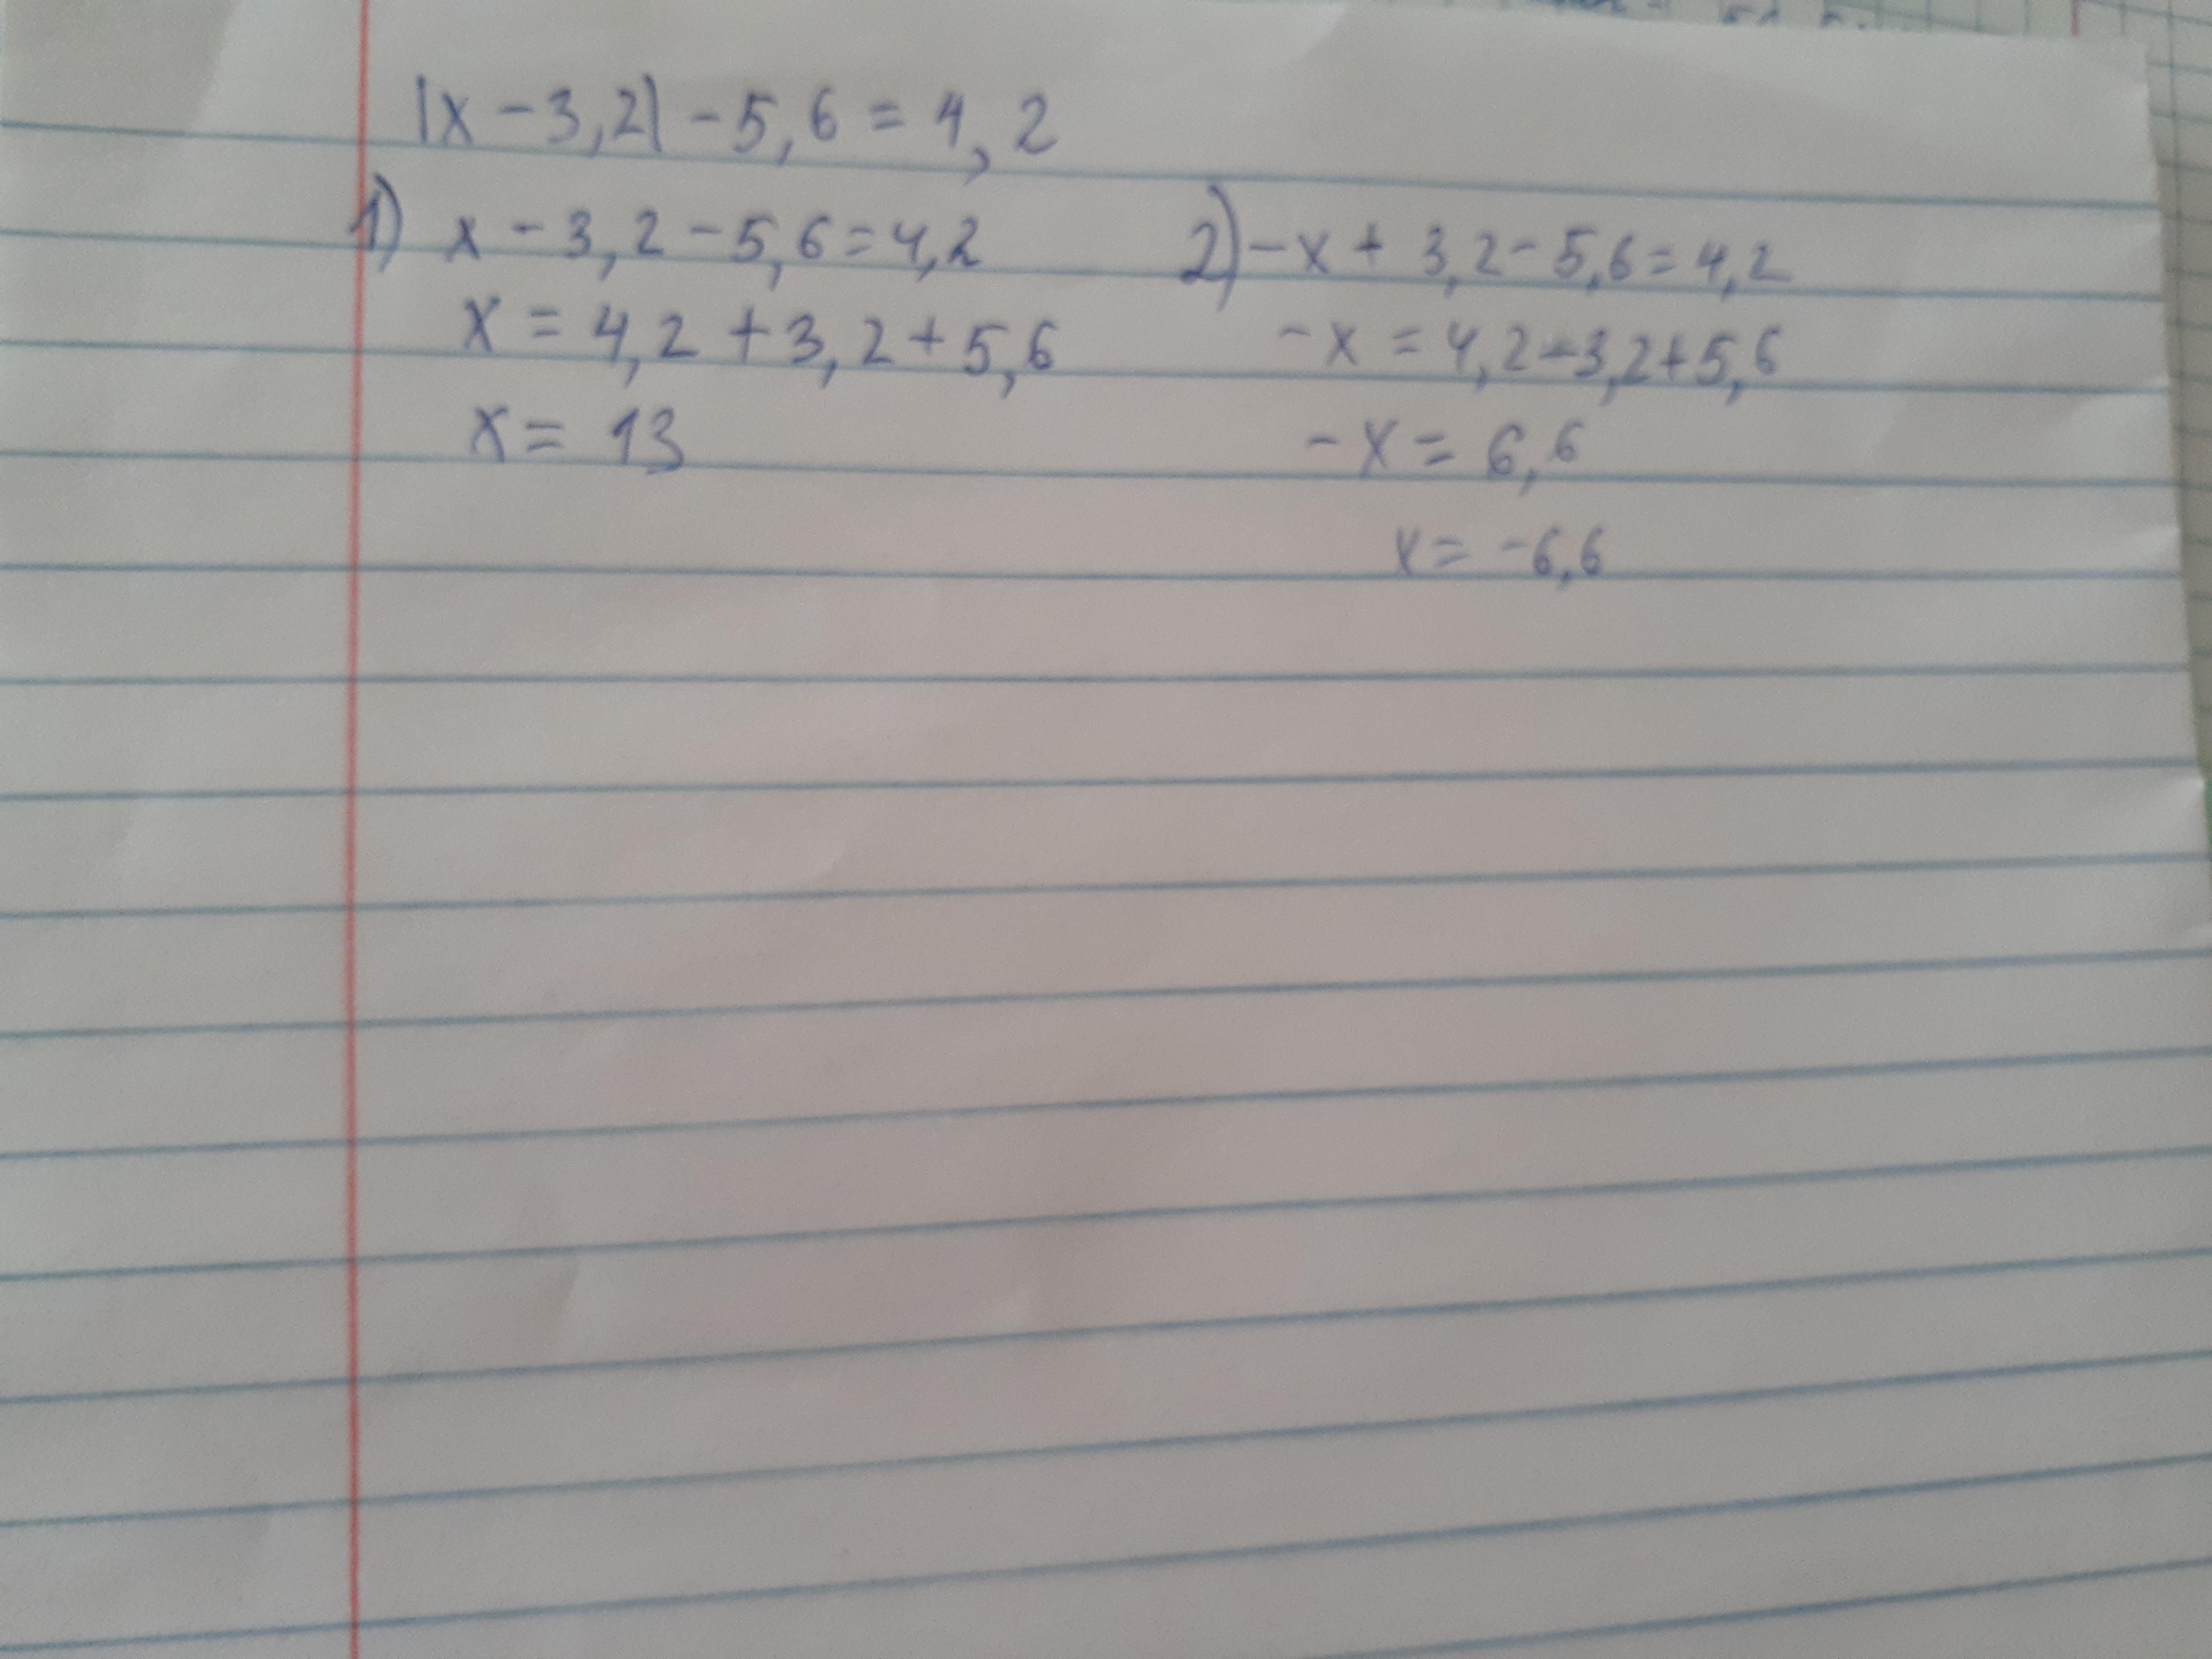 |x - 3,2| - 5,6 = 4,2
1) x - 3,2 - 5,6 = 4,2
x = 4,2 + 3,2 + 5,6
x = 13
2) -x + 3,2 - 5,6 = 4,2
-x = 4,2 - 3,2 + 5,6
-x = 6,6
x = -6,6